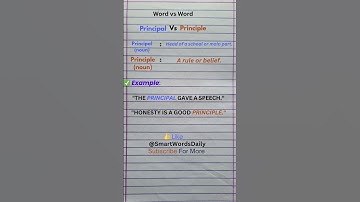 Word vs Word
Principal Vs Principle
Principal (noun) : Head of a school or main part.
Principle (noun) : A rule or belief.
✅ Example:
"THE PRINCIPAL GAVE A SPEECH."
"HONESTY IS A GOOD PRINCIPLE."
👍Like
@SmartWordsDaily
Subscribe For More